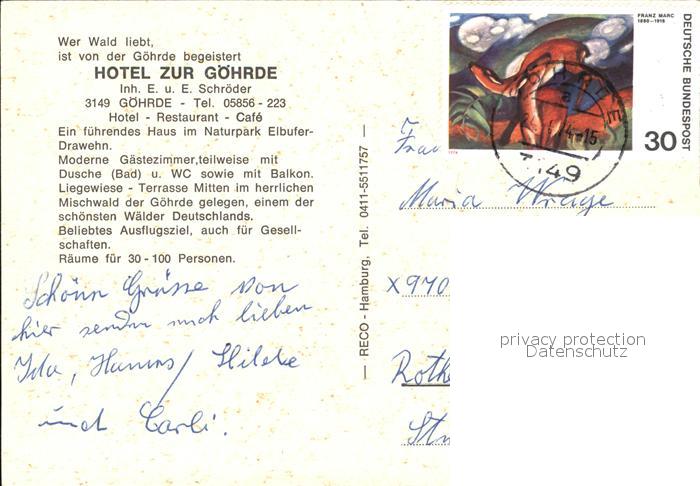 Wer Wald liebt,
ist von der Göhrde begeistert
HOTEL ZUR GÖHRDE
Inh. E. u. E. Schröder
3149 GÖHRDE - Tel. 05856 - 223
Hotel - Restaurant - Café
Ein führendes Haus im Naturpark Elbufer-
Drawehn.
Moderne Gästezimmer,teilweise mit
Dusche (Bad) u. WC sowie mit Balkon.
Liegewiese - Terrasse Mitten im herrlichen
Mischwald der Göhrde gelegen, einem der
schönsten Wälder Deutschlands.
Beliebtes Ausflugsziel, auch für Gesell-
schaften.
Räume für 30 - 100 Personen.
Schöne Grüsse von
hier senden euch lieben
Ida, Hanns/ Hilde
und Carli.
— RECO - Hamburg, Tel. 0411-5511757 —
FRANZ MARC
1880-1916
DEUTSCHE BUNDESPOST
30
1974
3149
Frau
Maria Wrage
X970
Roth
privacy protection
Datenschutz